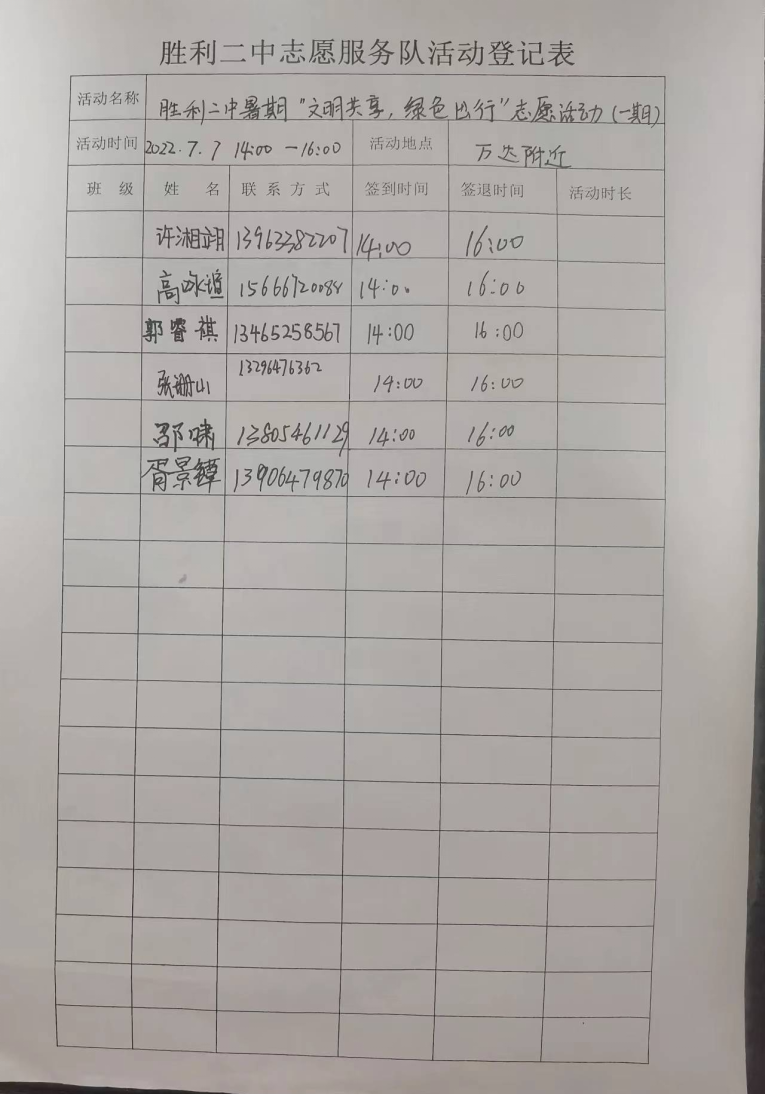 胜利二中志愿服务队活动登记表
活动名称 胜利二中暑期"文明共享,绿色出行"志愿活动(一期)
活动时间 2022.7.7 14:00 —16:00 活动地点 万达附近
班 级 姓 名 联系方式 签到时间 签退时间 活动时长
许湘翊 13963382207 14:00 16:00
高 15666720088 14:00 16:00
郭睿祺 13465258567 14:00 16:00
张珊山 13296476362 14:00 16:00
邵啸 13805461129 14:00 16:00
胥景镡 13906479870 14:00 16:00